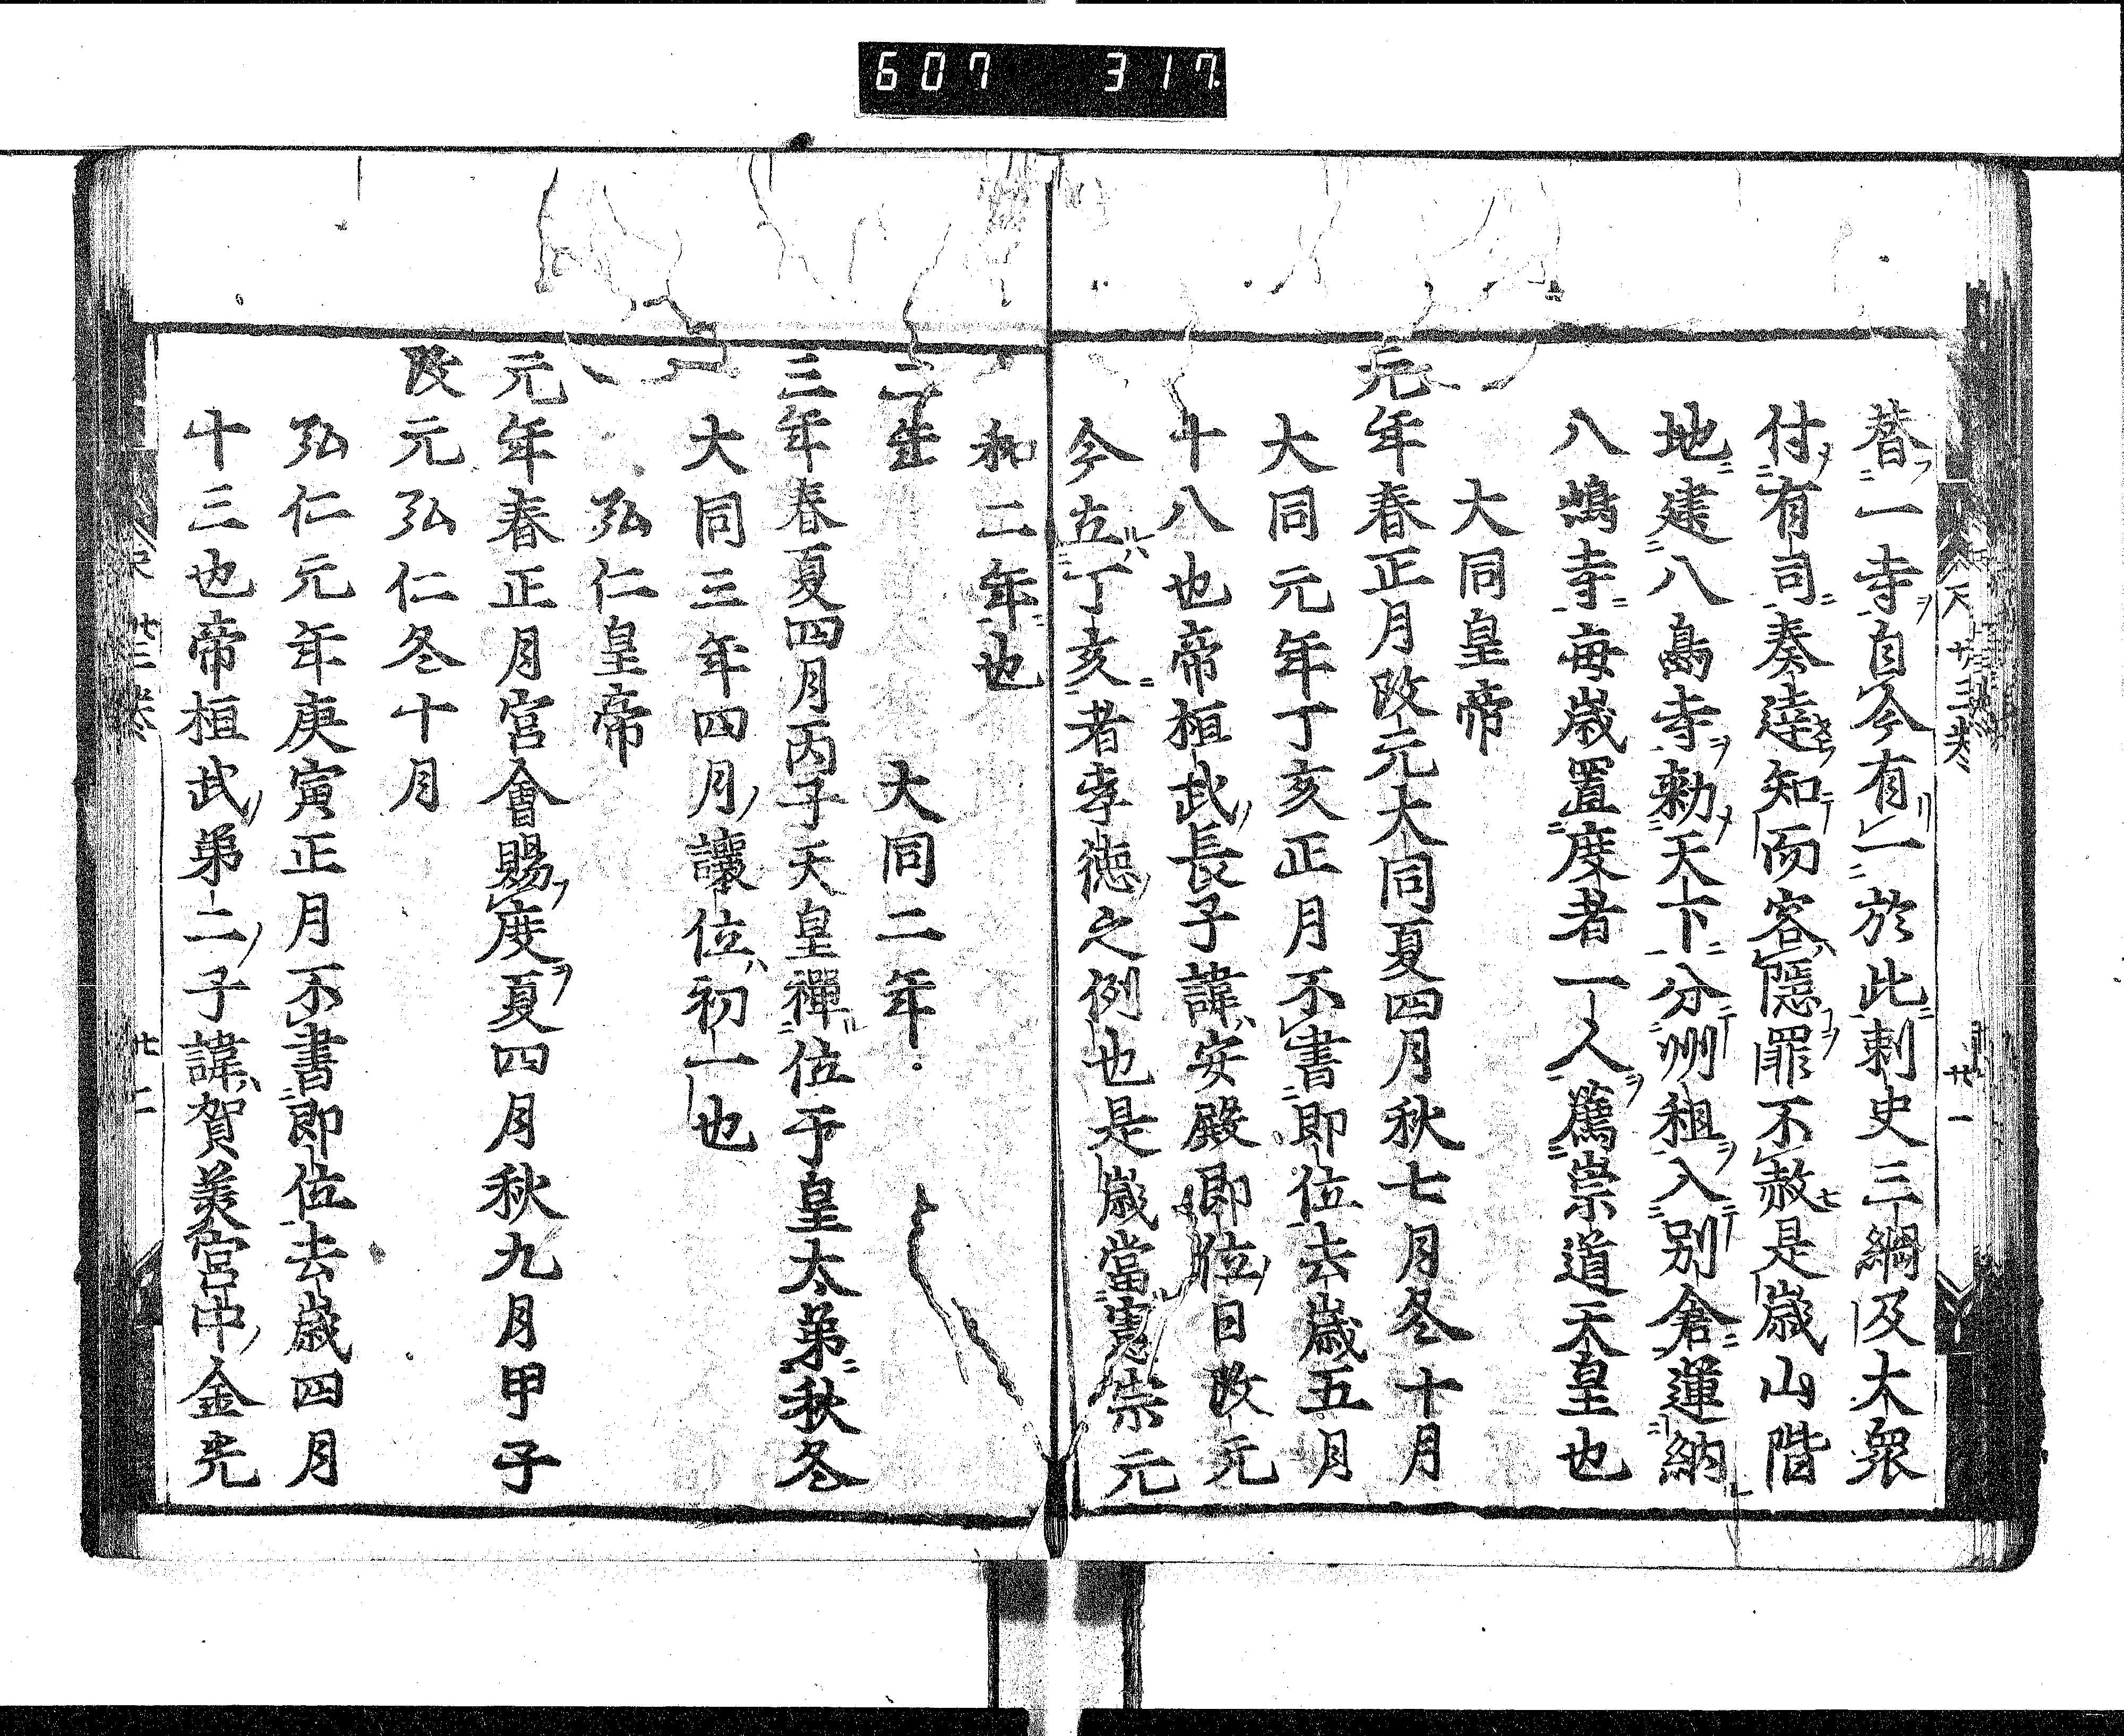 607 317
廿三巻
廿一
替一寺自今有一於此刺史三綱及大衆
付有司奏達知而容隱罪不赦是歳山階
地建八島寺勅天下分州租入別倉運納
八嶋寺毎歳置度者一人薦崇道天皇也
大同皇帝
元年春正月改元大同夏四月秋七月冬十月
大同元年丁亥正月不書即位去歳五月
十八也帝桓武長子諱安殿即位日改元
今立丁亥者孝德之例也是歳當憲宗元
和二年也
二年 大同二年
三年春夏四月丙子天皇禪位于皇太弟秋冬
大同三年四月讓位初一也
弘仁皇帝
元年春正月宮會賜度夏四月秋九月甲子
改元弘仁冬十月
弘仁元年庚寅正月不書即位去歳四月
十三也帝桓武弟二子諱賀美宮中金光
廿三巻
廿二